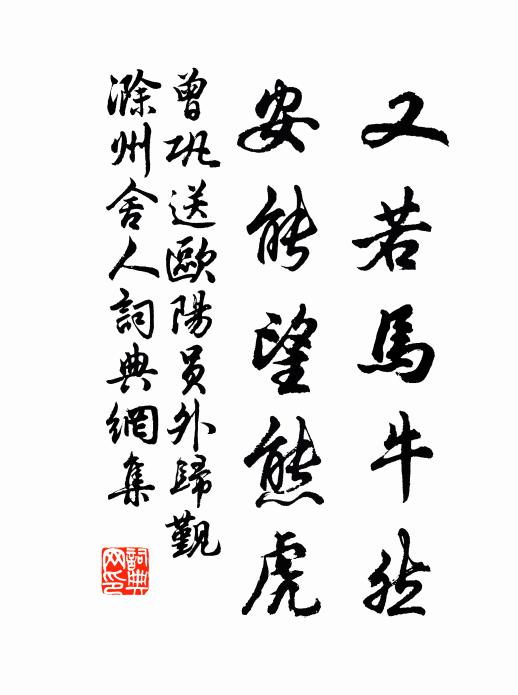 又若馬牛然
安能望熊虎
曾巩送歐陽員外歸觀
滁州舍人詞典網集
詞典網印